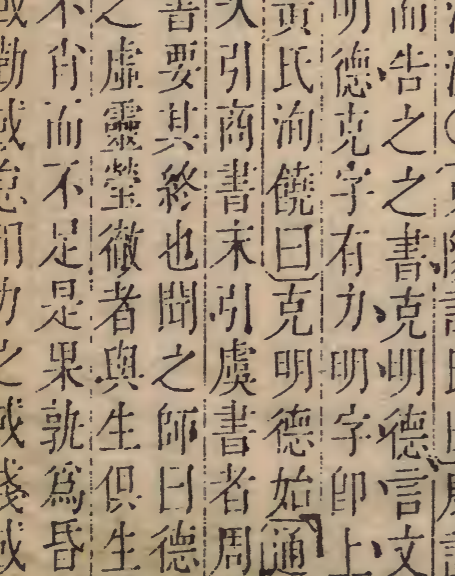 而告之之書克明德言文
明德克字有力明字卽上
黃氏洵饒曰克明德始通
大引商書末引虞書者周
者要其終也聞之師曰德
之虛靈瑩徹者與生俱生
不肖而不足是果孰爲昏
或勤或怠
之或淺或